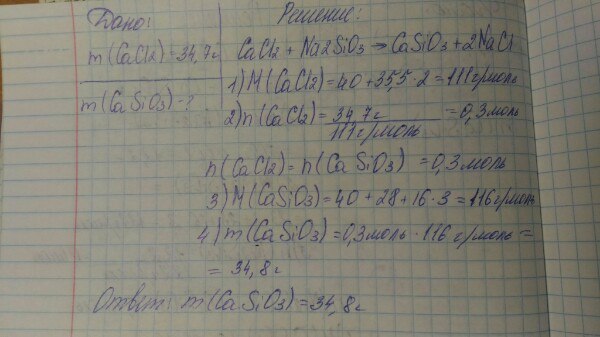 Дано:
Решение:
m(CaCl2)=34,7г
m(CaSiO3)-?
CaCl2 + Na2SiO3 → CaSiO3 + 2NaCl
1) M(CaCl2) = 40 + 35,5 · 2 = 111 г/моль
2) n(CaCl2) = 34,7г / 111 г/моль = 0,3 моль
n(CaCl2) = n(CaSiO3) = 0,3 моль
3) M(CaSiO3) = 40 + 28 + 16 · 3 = 116 г/моль
4) m(CaSiO3) = 0,3 моль · 116 г/моль =
= 34,8 г
Ответ: m(CaSiO3) = 34,8г